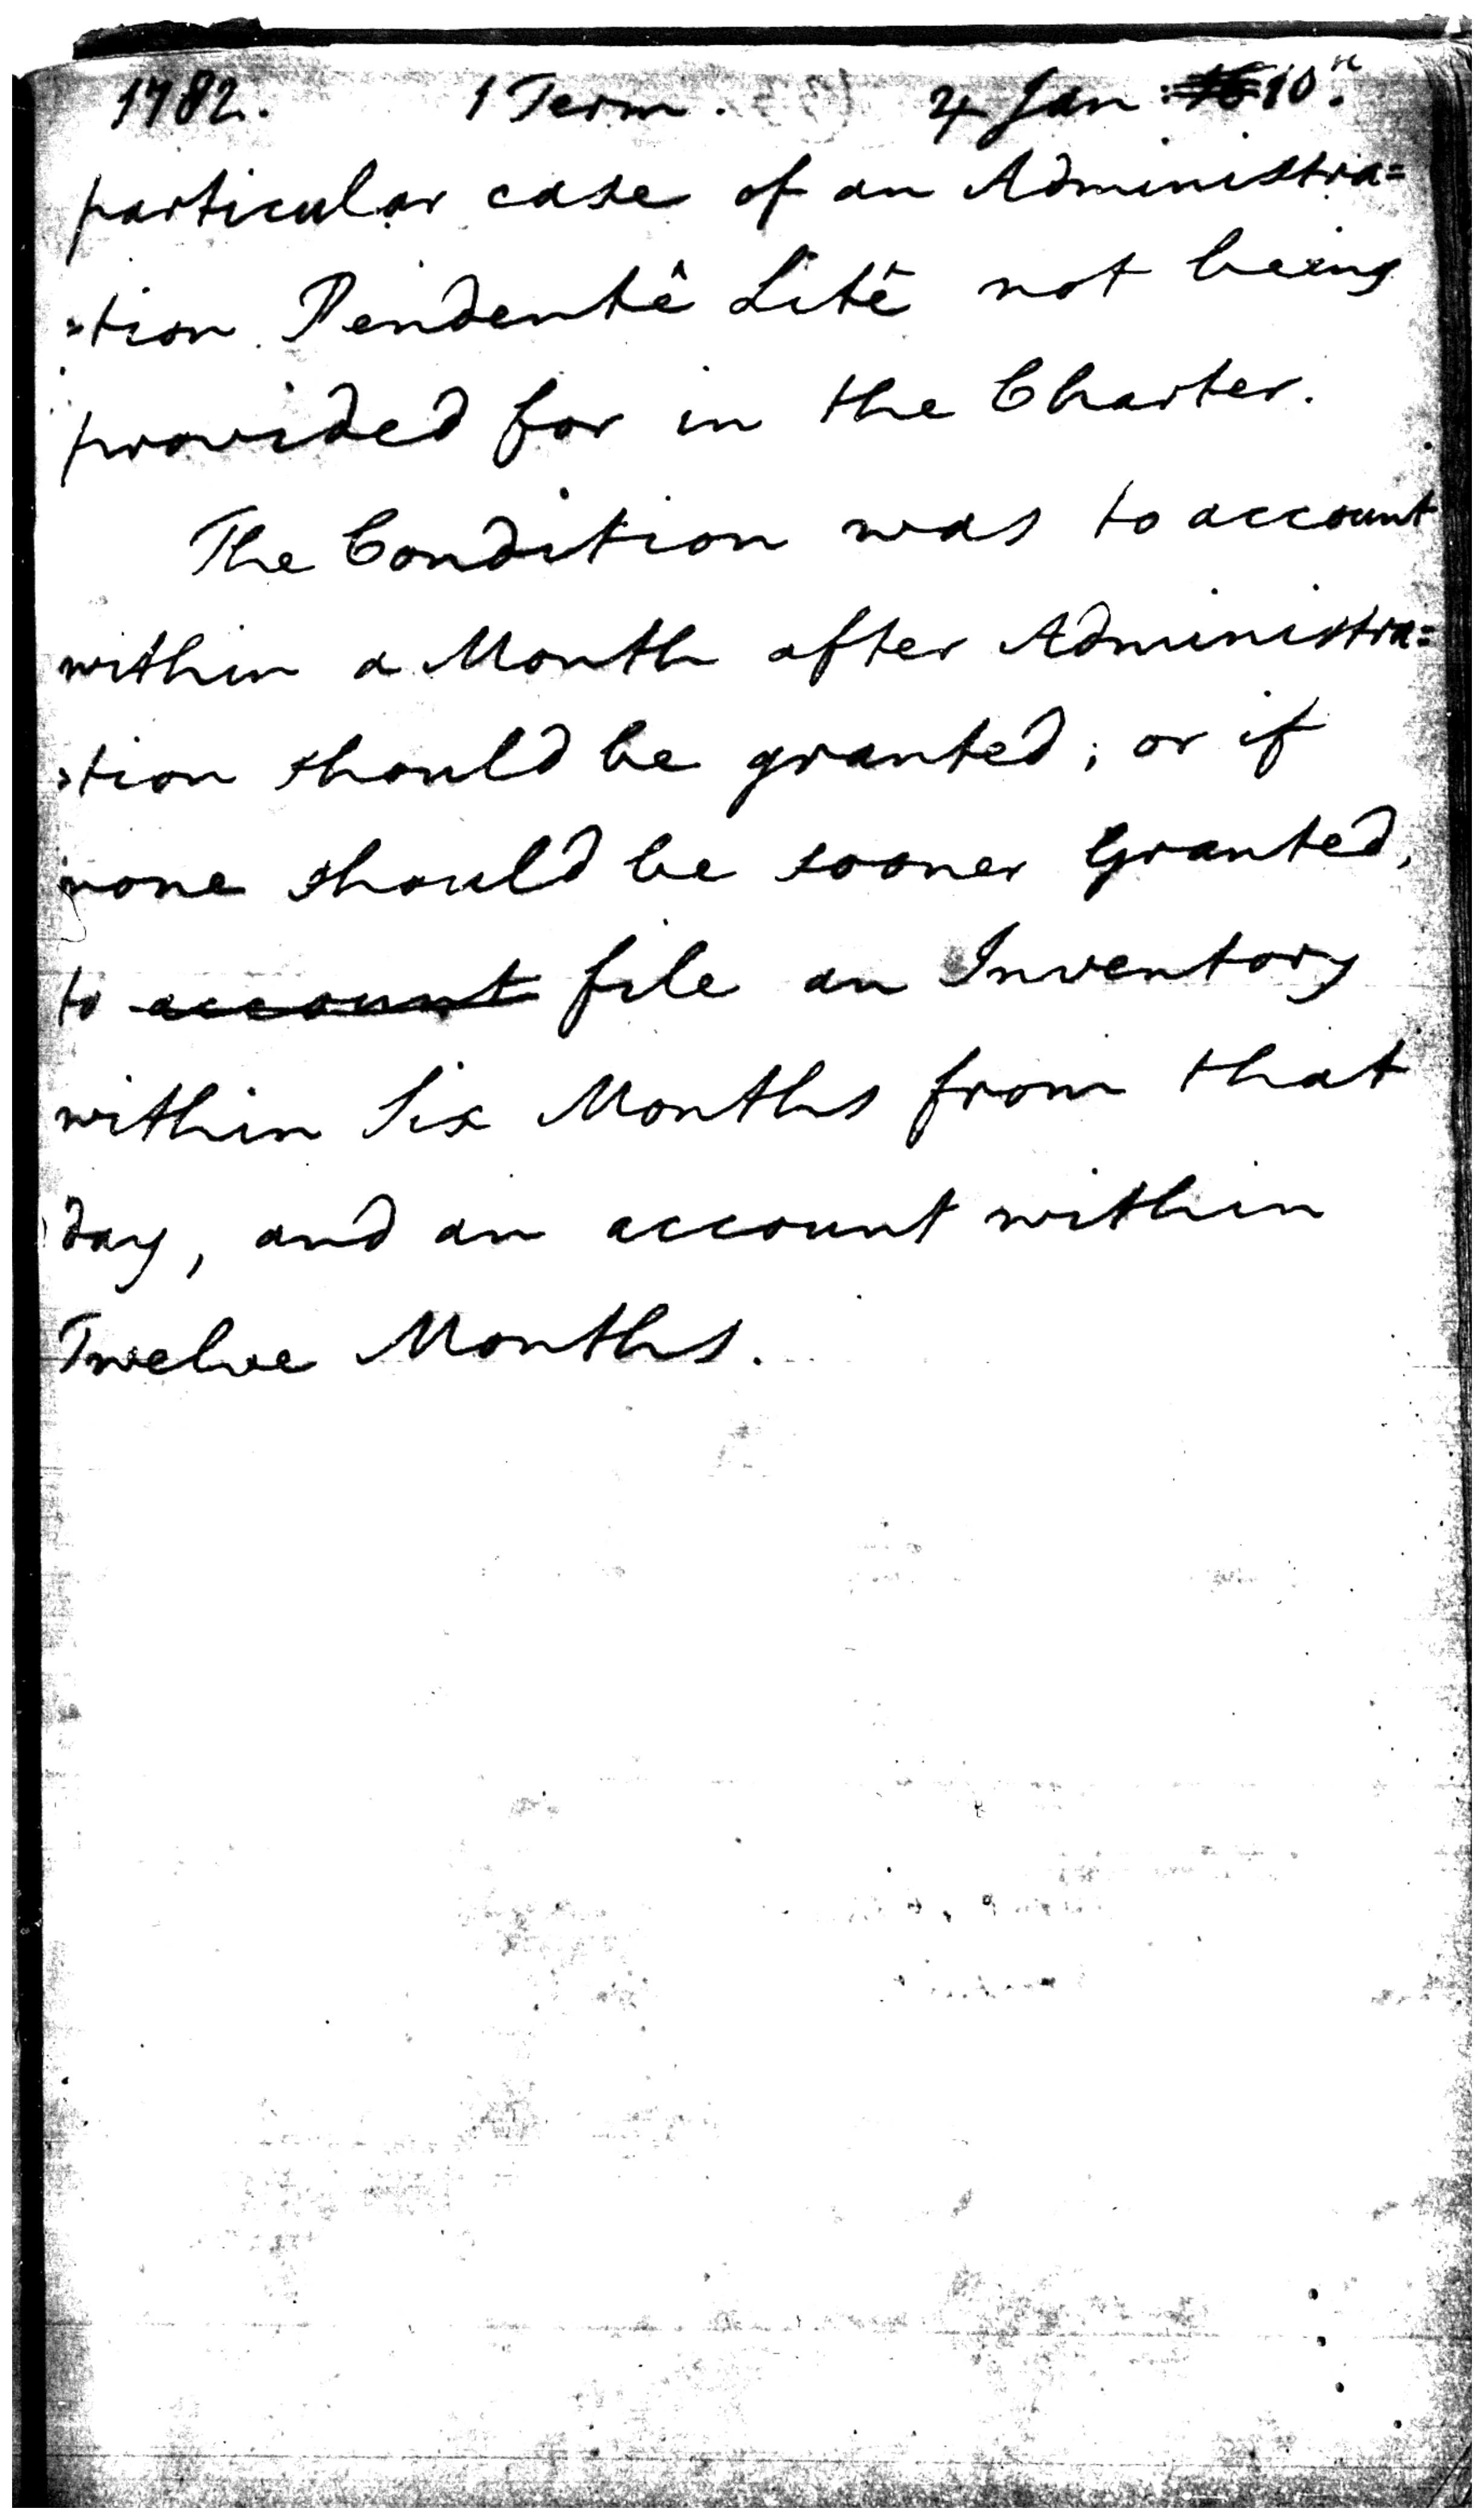 1782. 1 Term. 4 Jan 10.
particular case of an Administra=
=tion Pendentê Litê not being
provided for in the Charter.
The Condition was to account
within a Month after Administra=
=tion should be granted; or if
none should be sooner Granted,
to account file an Inventory
within Six Months from that
day, and an account within
Twelve Months.